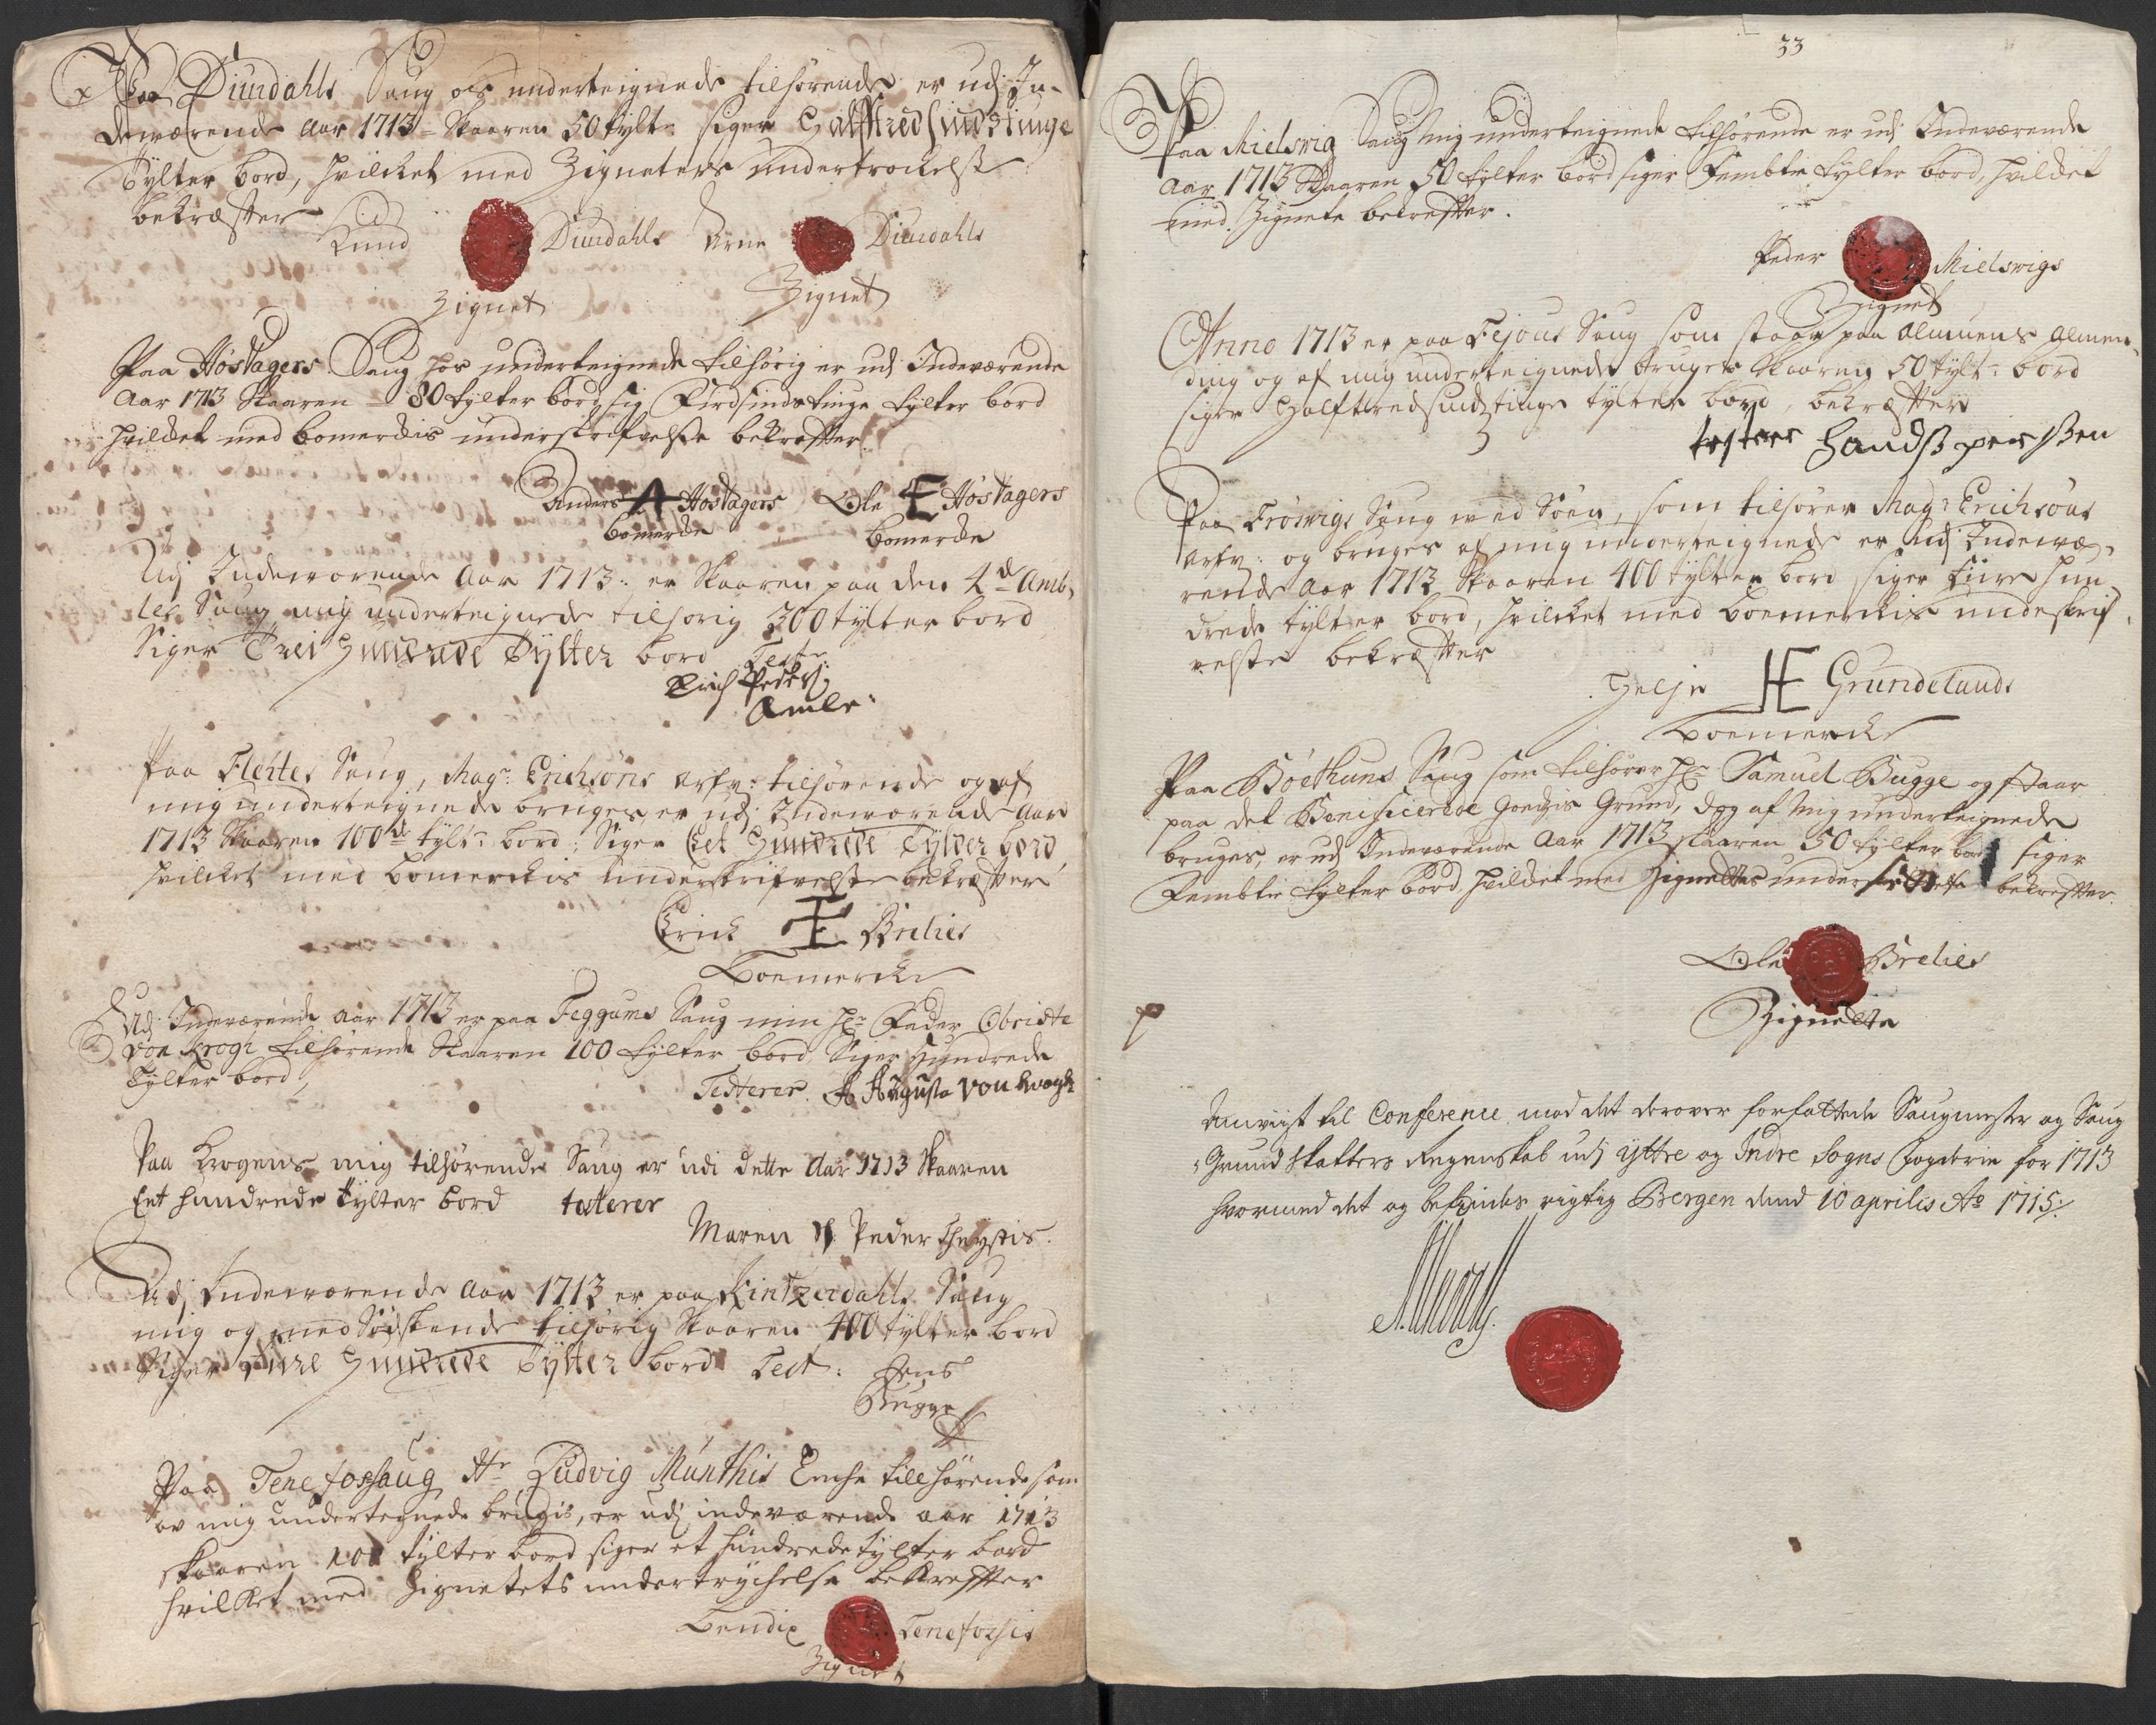 Paa Diurdahls Saug os underteignede tilhørende er udj In-
deværende Aar 1713 Skaaren 50 tylt: siger Halfftredsindstinge
Tylter bord, hvilcket med Zigneters undertrockelsse
bekræfter
Knud Diurdahls Arne Diurdahls
Zignet Zignet
Paa Høstagers Saug hos underteignede tilhørig er udj Indeværende
Aar 1713 Skaaren 80 tylter bord sig. Firdsindstinge tylter bord
hvilcket med bomerckis underskrifvelsse bekrefter
Anders A Høstagers Ole Høstagers
bomercke bomercke
Udj Indeværende Aar 1713: er Skaaren paa den 4de Amb-
les Saug mig underteignede tilhørig 300 tylter bord
Siger Trei Hundrede Tylter bord Test:
Erich Peders:
Amle
Paa Flehtes Saug, Mag: Erichsøns Arfv: tilhørende og af
mig underteignede bruges er udj Indeværende Aar
1713 Skaaren 100de tylt: bord: Siger Eet Hundrede Tylter bord
hvilcket med bomerckis underskrifvelsse bekræfter
Erick Brelies
Boemercke
Udj Indeværende Aar 1713 er paa Feggums Saug min Hr: Fader Obriste
von Krogh tilhørende Skaaren 100 tylter bord Siger Hundrede
Tylter bord,
Testerer A Augusta von Krogh
Paa Krogens mig tilhørende Saug er udi dette Aar 1713 Skaaren
Eet hundrede tylter bord testerer
Maren Sl. Peder Theystis.
Udj Indeværende Aar 1713 er paa Kintzerdahls Saug
mig og med Sødskende tilhørig Skaaren 400 tylter bord
Siger Fiire Hundrede Tylter bord Test: Jens
Bugge
Paa Tenefossaug Hr Ludvig Munthis Enche tillhørende som
av mig undertegnede brugis, er udj indeværende aar 1713
skaaren 100 tylter bord siger et hundrede tylter bord
hvilket med Zignetets undertrychelse bekrefter
Bendix Tenefossis
Zignet
33
Paa Mielsvig Saug mig underteignede tilhørende er udj Indeværende
Aar 1713 Skaaren 50 tylter bord siger Fembtie tylter bord, hvilcket
med Zignete bekrefter.
Peder Mielsvigs
Zignet
Anno 1713 er paa Fejous Saug som staar paa Almuens Almen-
ding og af mig underteignede bruges Skaaren 50 tylt: bord
siger Halftredsindstinge tylter bord, bekræfter
testerer Handß persßen
Paa Frøsvigs Saug ved Søen, som tilhører Mag: Erichsøns
Arfv: og bruges af mig underteignede er udj Indevæ-
rende Aar 1713 Skaaren 400 tylter bord siger Fiire Hun-
drede tylter bord, hvilcket med boemerckis undeskrif-
velsse bekræfter
Helje Grundelands
Boemercke
Paa Bøethuns Saug som tilhører Hr: Samuel Bugge og staar
paa det Benificerede Goedzis Grund, dog af Mig underteignede
bruges, er udj Indeværende Aar 1713 skaaren 50 tylter bord siger
Fembtie tylter bord, hvilcket med Zignettes bekrefter.
Ole Brelies
Zignette
Anviist til Conference med det derover forfattede Saugmester og Saug
Grund skatters Regenskab udj yttre og Indre Sogns fogderie for 1713
hvormed det og befindes rigtig Bergen dend 10 aprilis Ao 1715: